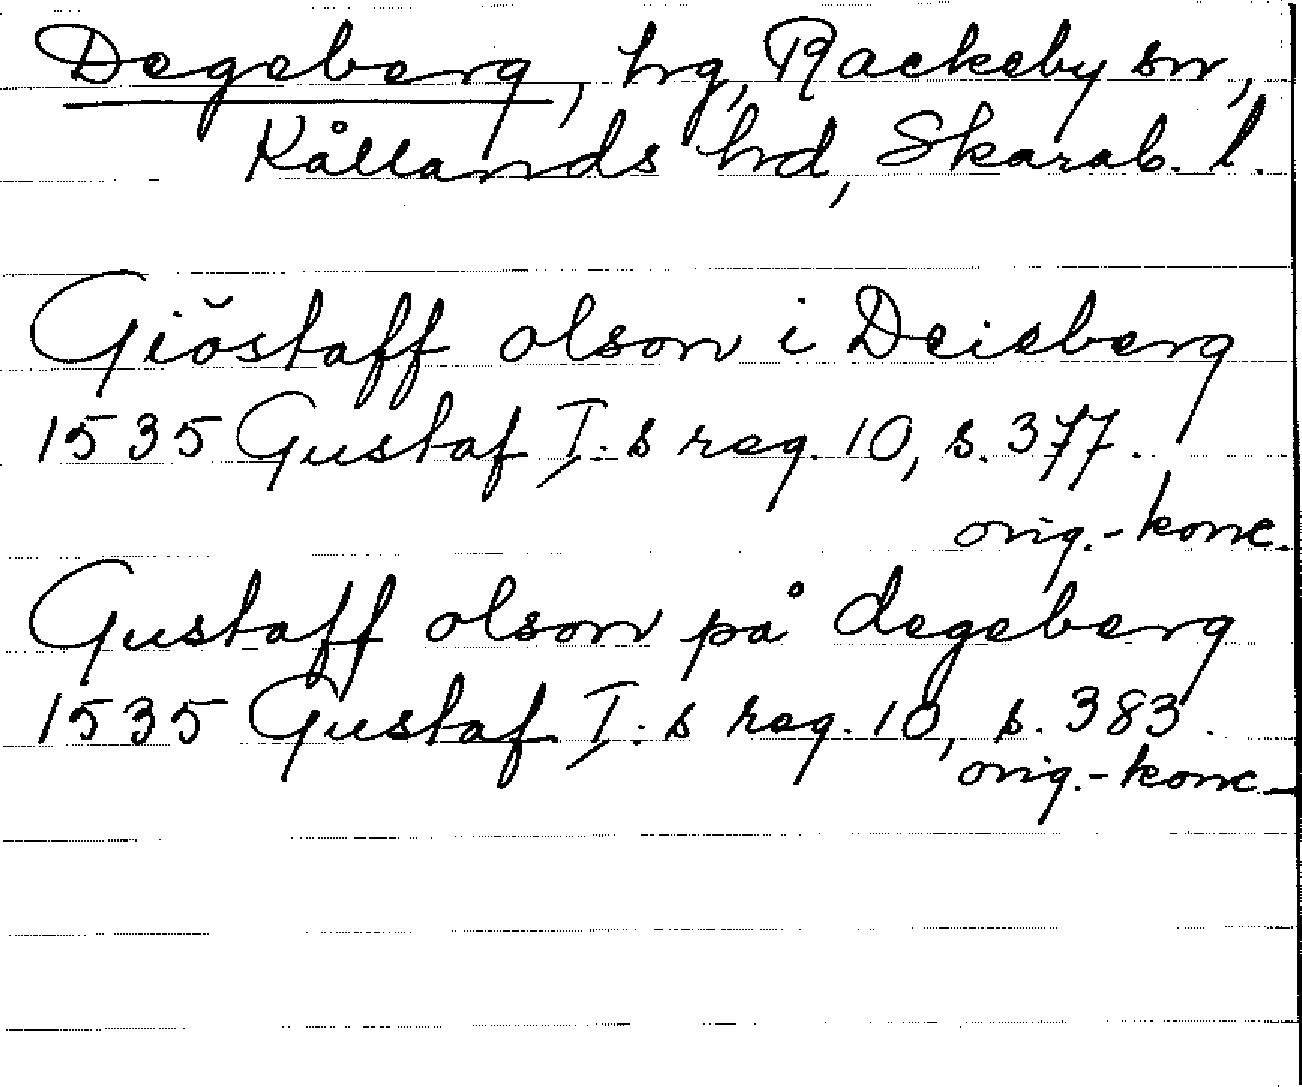 Degeberg, hg, Rackeby sn,
Kållands hd, Skarab. l.
Giöstaff olson i Deieberg
1535 Gustaf I:s reg. 10, s. 377.
orig.-konc.
Gustaff olson på degeberg
1535 Gustaf I:s reg. 10, s. 383.
orig.-konc.